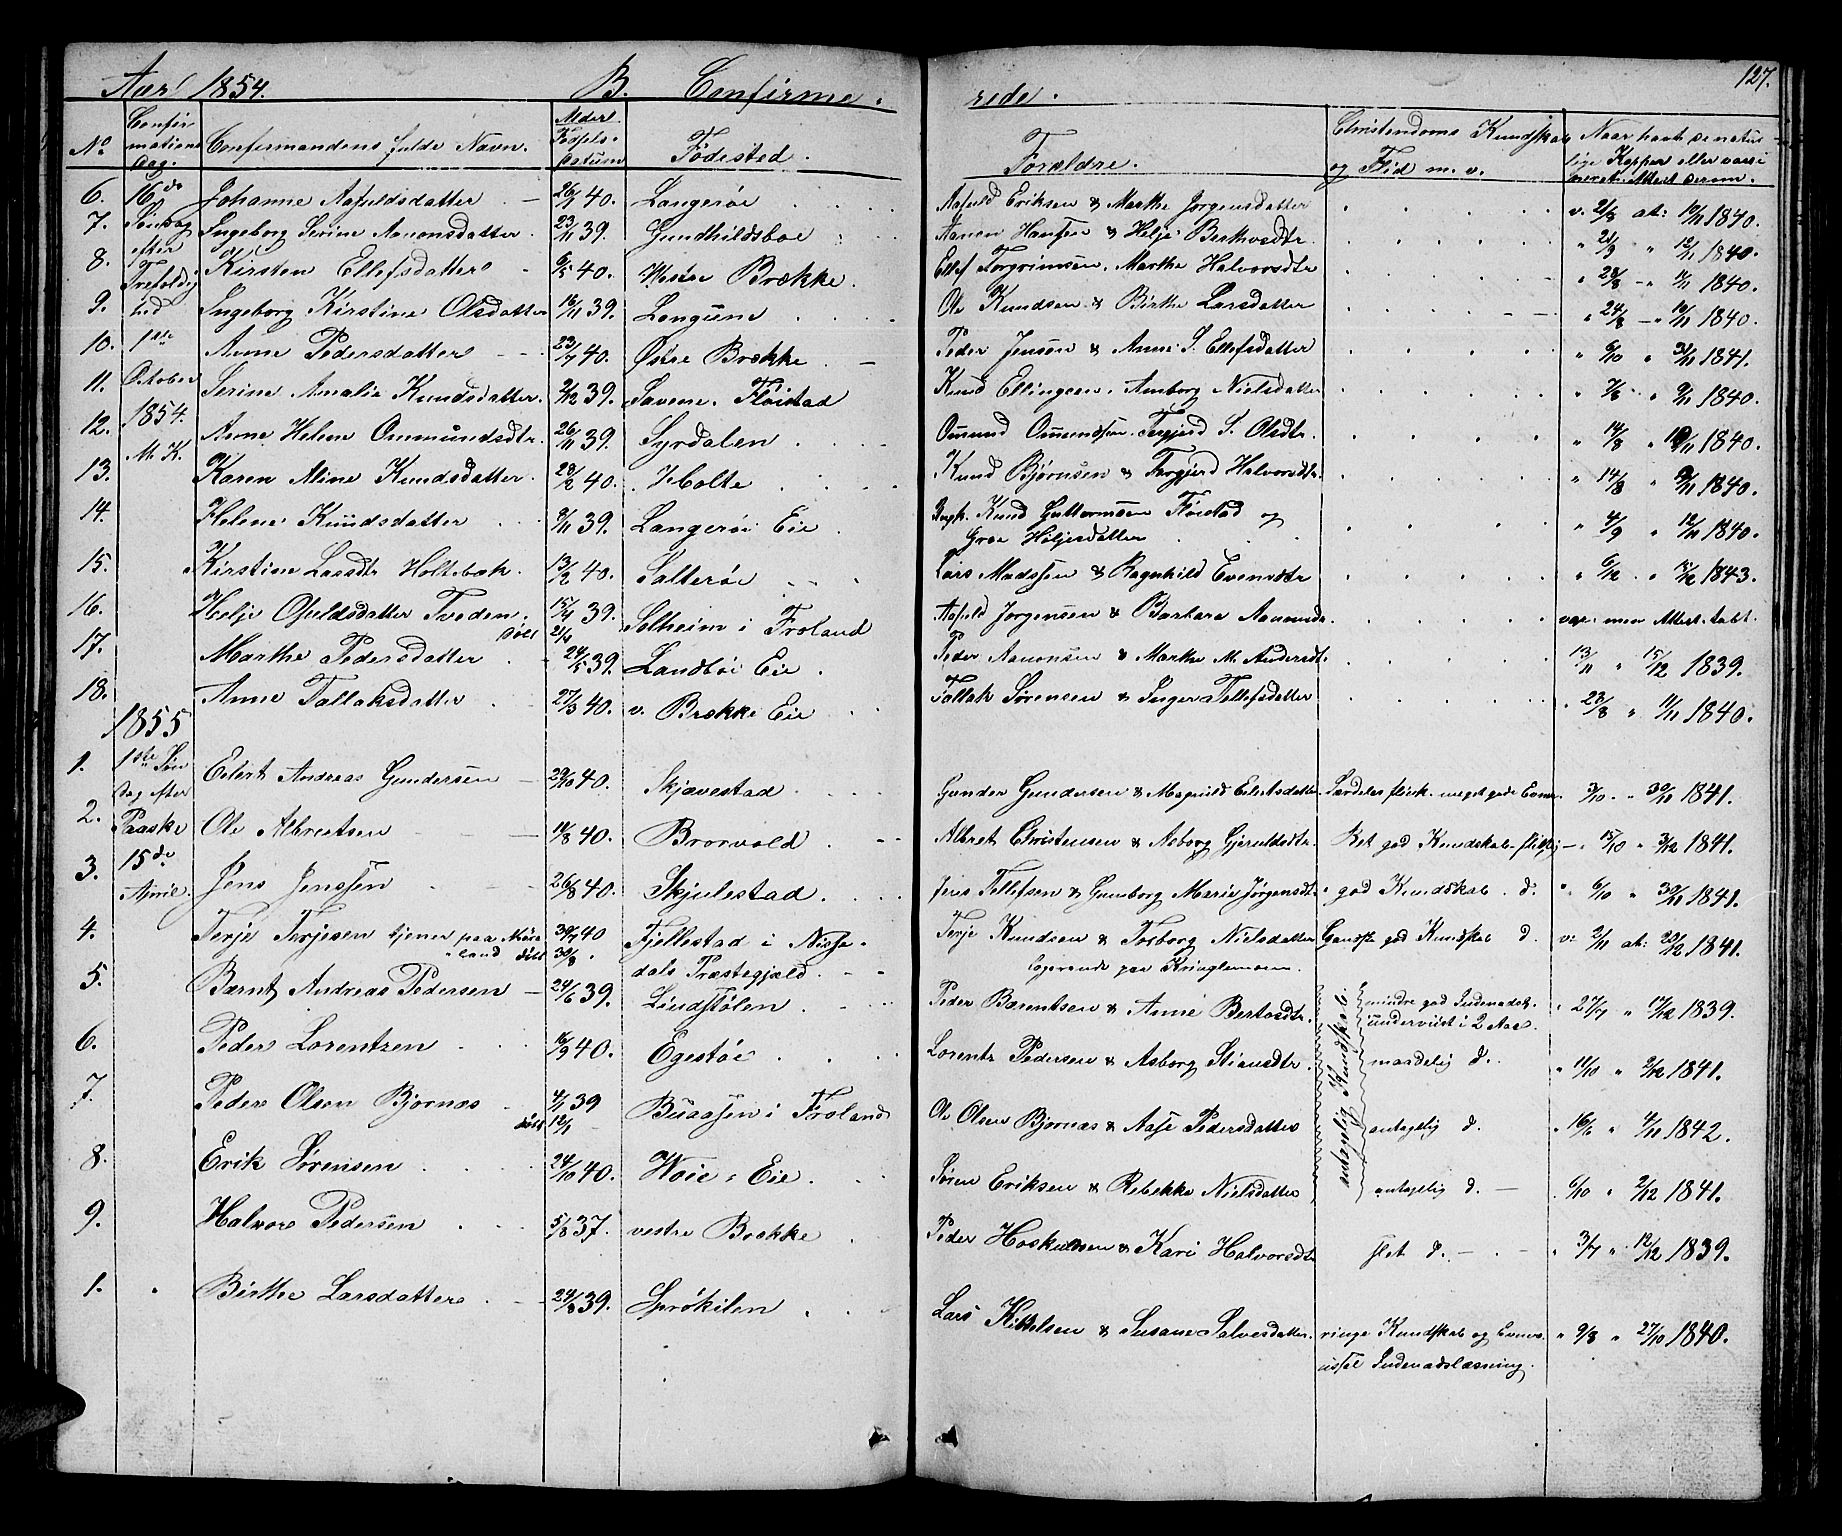 Aar 1854. B. Confirme. rede. 127.
No Confirmations Dag. Confirmandens fulde Navn. Alder. Fødsels Datum Fødested. Forældre. Christendoms Kundskab og Flid m. v. Naar havt de naturlige Kopper eller vaccineret. Attest derom.
6. 16de Johanne Aafuldsdatter 26/7 40. Langerøi Eriksen & Marthe Jørgensdatter 1840.
7. Søndag Ingeborg Serine Aanonsdatter. 23/11 39. Gundhildsboe Aanon Hansen & Helje 12/11 1840.
8. efter Kirsten Ellefsdatter 6/5 40. Vestre Brække. Ellef Torgrimsen. Marthe Halvorsdtr 1840.
9. Trefoldighed Ingeborg Kirstine Olsdatter 16/11 39. Langume Ole Knudsen & Birthe Larsdatter 24/8 1840.
10. 1ste Anne Pedersdatter 23/7 40. Østre Brække Peder Jensen & Anne S. Ellefsdatter 6/10 1841.
11. October Serine Amalie Knudsdatter. 2/12 39. Savene. Fløistad Knud Ellingsen. Amborg Nielsdatter 1840.
12. 1854. Anne Helene Ommundsdtr. 26/11 39. Syrdalen Omund Omundsen. Torgjerd S. Olsdtr. 14/8 1840.
13. M. K. Karen Aline Knudsdatter. 28/2 40. Holte Knud Bjørnsen & Torgjerd Halvorsdtr. 14/8 1840.
14. Helene Knudsdatter 8/11 39. Langerøi Eie. Knud Guttormsen Fløistad og Groe Heljesdatter 4/9 12/11 1840.
15. Kirstine Larsdtr Holtebæk. 13/2 40. Salterøi Lars Madssen & Ragnhild Evensdtr 6/12 1843.
16. Helje Ofuldsdatter Tveden. døbt 15/4 39. 21/4 Solheim i Froland Jørgensen & Barbara vac. men Attest tabt.
17. Marthe Pedersdatter 24/5 39. Landbøi Eie. Peder Aanonsen & Marthe M. Andersdtr. 13/11 15/12 1839.
18. Anne Tallaksdatter 27/3 40. v. Brække Eie Tallak Sørensen & Inger Tellefsdatter 23/8 11/11 1840.
1855
1. 1ste Søn Eilert Andreas Gundersen 29/10 40. Skjævestad Gunder Gundersen & Magnild Eilertsdatter. Særdeles flink. meget gode Evner. 3/10. 30/11 1841.
2. dag efter Paaske Ole Albretsen 11/8 40. Brorvold. Albret Christensen & Asborg Gjeruldsdtr. Ret god Kundskab. flittig 15/10 3/12 1841.
3. 15de April. Jens Jenssen 26/8 40. Skjulestad. Jens Tellefsen & Gunborg Marie Jørgensdtr. god Kundskab. d. 6/10 30/11 1841.
4. Terje Terjesen tjener paa land døbt 30/7 40 30/8 Fjellestad i Nissedals Præstegjæld. Terje Knudsen & Torborg Nielsdatter logerende paa Kringlemoen. Ganske god Kundskab d. v: 2/11 at: 20/12 1841.
5. Barnt Andreas Pedersen 24/6 39. Lindstølen. Peder Barentsen & Anne mindre god Indenadsl. underviist i 2 Aar. 27/7 17/12 1839.
6. Peder Lorentzen 16/9 40. Egestøe. Lorentz Pedersen & Asborg Stiansdtr. maadelig d. 11/10 2/12 1841.
7. Peder Olsen Bjornæs døbt 4/1 39 12/1 Buaasen i Froland Ole Olsen Bjornæs & Aase Pedersdatter antagelig d. 16/6 4/11 1842.
8. Erik Sørensen 24/10 40. Woie. Eie. Søren Eriksen & Rebekka Nielsdatter antagelig d. 6/10 2/12 1841.
9. Halvor Pedersen 5/8 37. vestre Brække Peder & Kari Halvorsdtr slet d. 3/7 12/12 1839.
1. Birthe Larsdatter 24/8 39. Sprøkilen Lars Kittelsen & Susane Salvesdatter. ringe Kundskab og Evner. ussel Indenadslæsning. 9/8 27/10 1840.